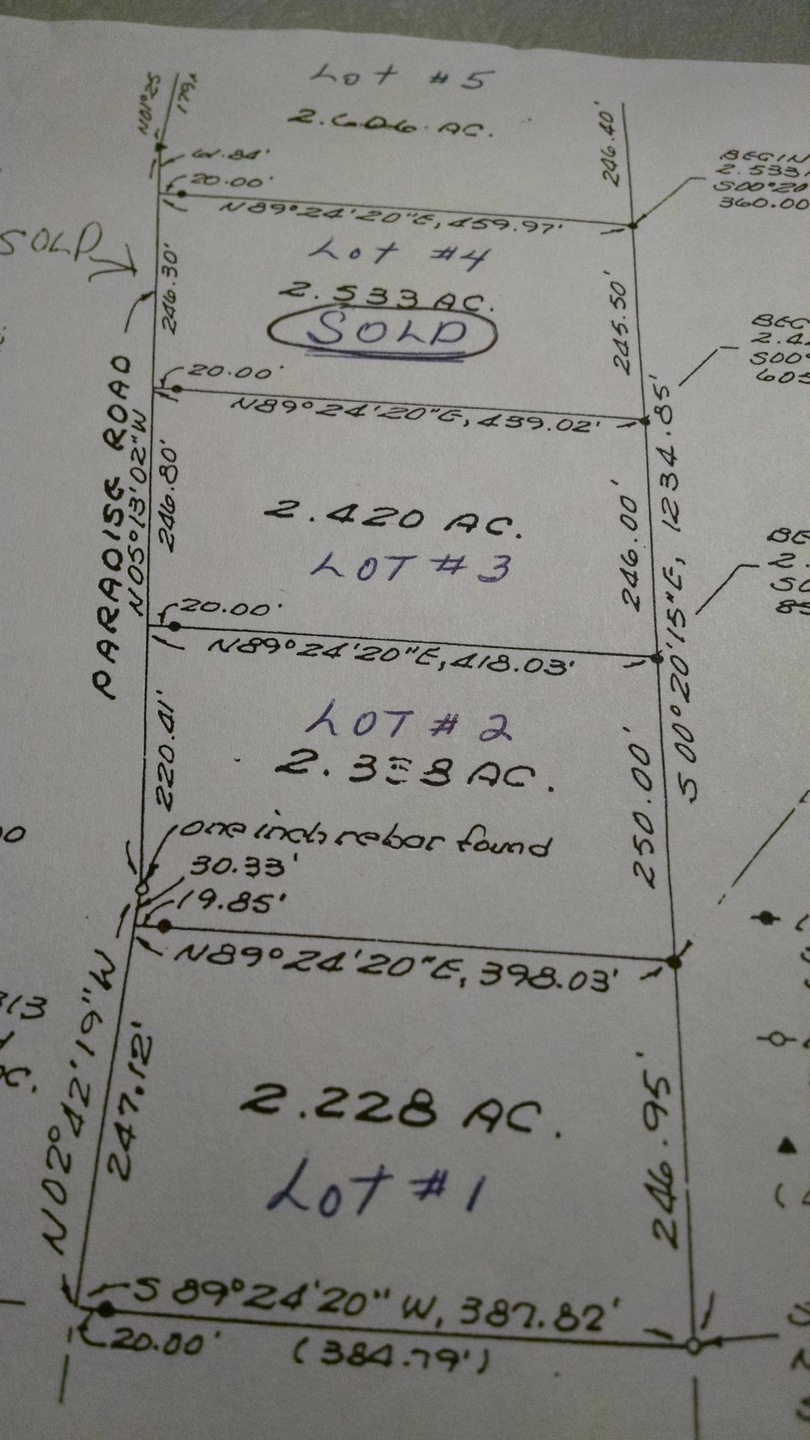 Lot #5
2.606 AC.
N01°25
179.
61.84'
20.00'
246.40'
N89°24'20"E, 459.97'
BEGIN
2.533
S00°20
360.00
SOLD
Lot #4
2.533 AC.
SOLD
246.30'
245.50'
20.00'
N89°24'20"E, 439.02'
BEG
2.4
S00°
605
PARADISE ROAD
N05°13'02"W
246.80'
2.420 AC.
LOT #3
246.00'
S 00°20'15"E, 1234.85'
20.00'
N89°24'20"E, 418.03'
BE
2.
SO
85
LOT #2
AC.
220.41'
250.00'
one inch rebar found
30.33'
19.85'
N89°24'20"E, 398.03'
N02°42'19"W
247.12'
2.228 AC.
LOT #1
246.95'
S 89°24'20" W, 387.82'
20.00'
(384.79')